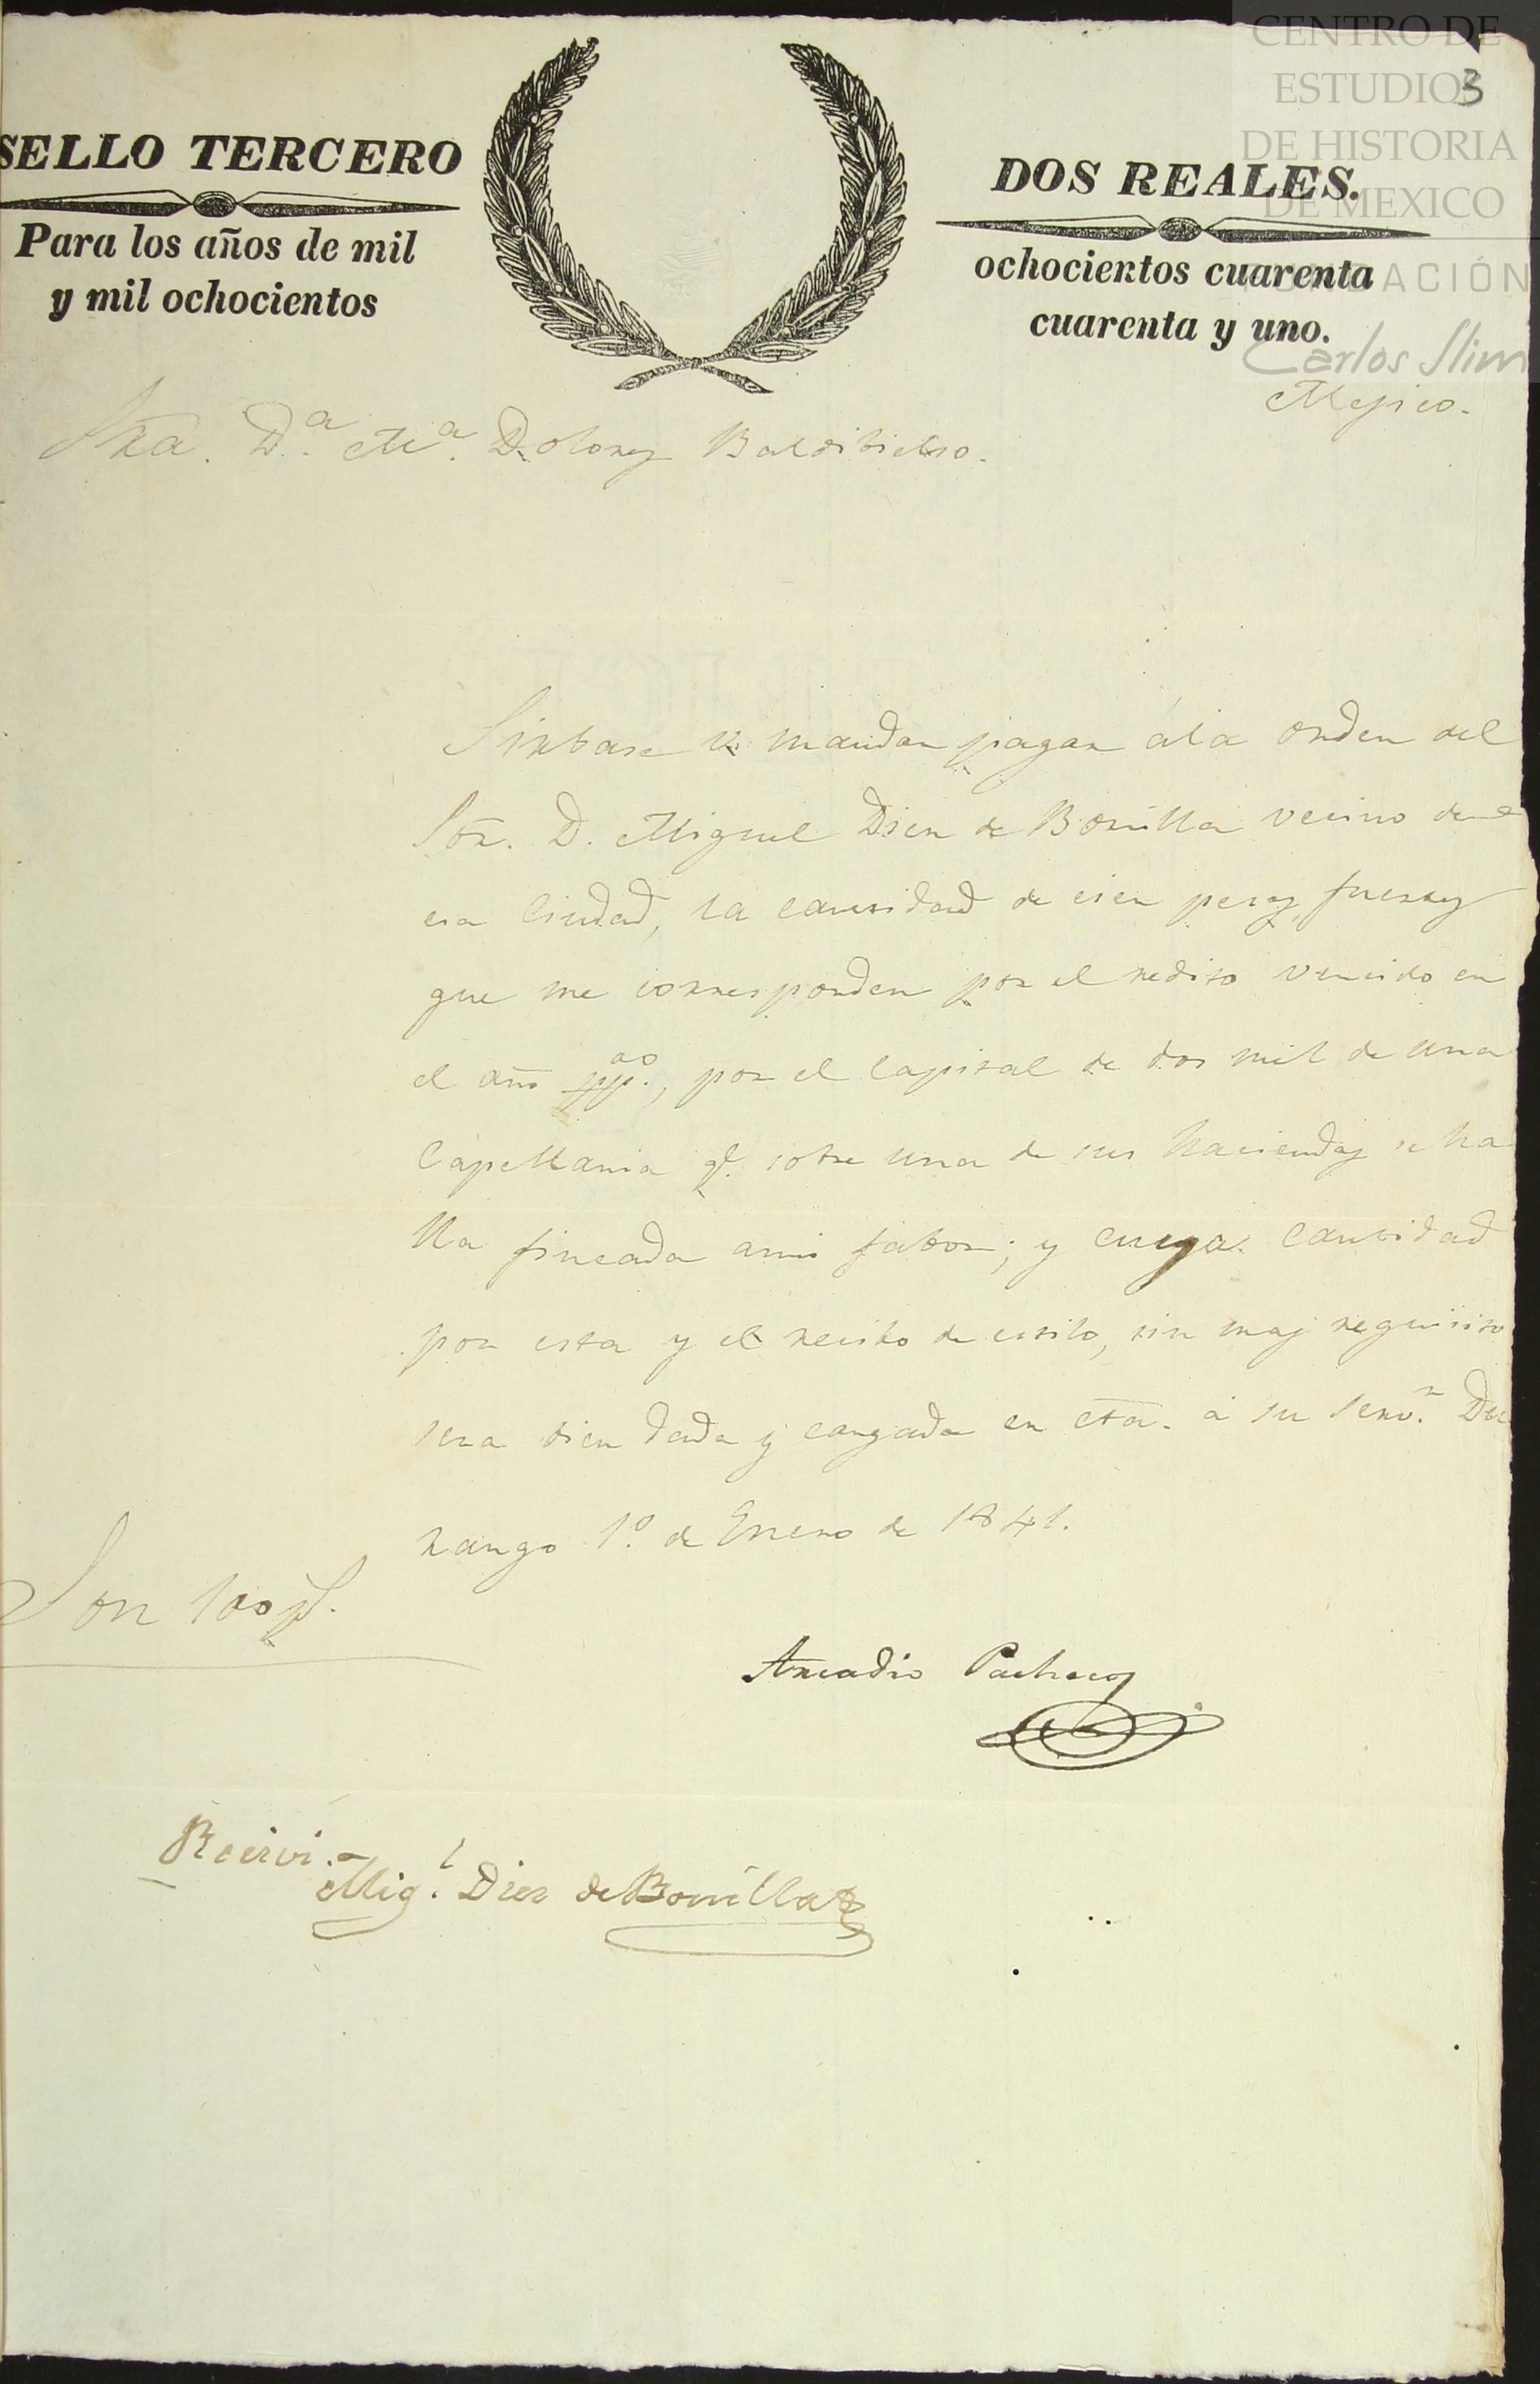 CENTRO DE
ESTUDIOS
DE HISTORIA
DE MEXICO
FUNDACIÓN
Carlos Slim
3
SELLO TERCERO
DOS REALES.
Para los años de mil
ochocientos cuarenta
y mil ochocientos
cuarenta y uno.
Mejico.
Sra. D.ª M.ª Dolores Baldibielso.
Sirbase V. mandar pagar á la orden del
Sor. D. Miguel Diez de Bonilla vecino de
esa Ciudad, la cantidad de cien pesos fuertes
que me corresponden por el redito vencido en
el año ppº., por el Capital de dos mil de una
Capellania q.e sobre una de sus haciendas se ha
lla fincada ami fabor; y cuya cantidad
por esta y el recibo de estilo, sin mas requisito
sera bien dada y cargada en cta. á su serv.r Du
rango 1.º de Enero de 1841.
Son 100 p.s
Arcadio Pacheco
Recivi.
Mig.l Diez de Bonilla